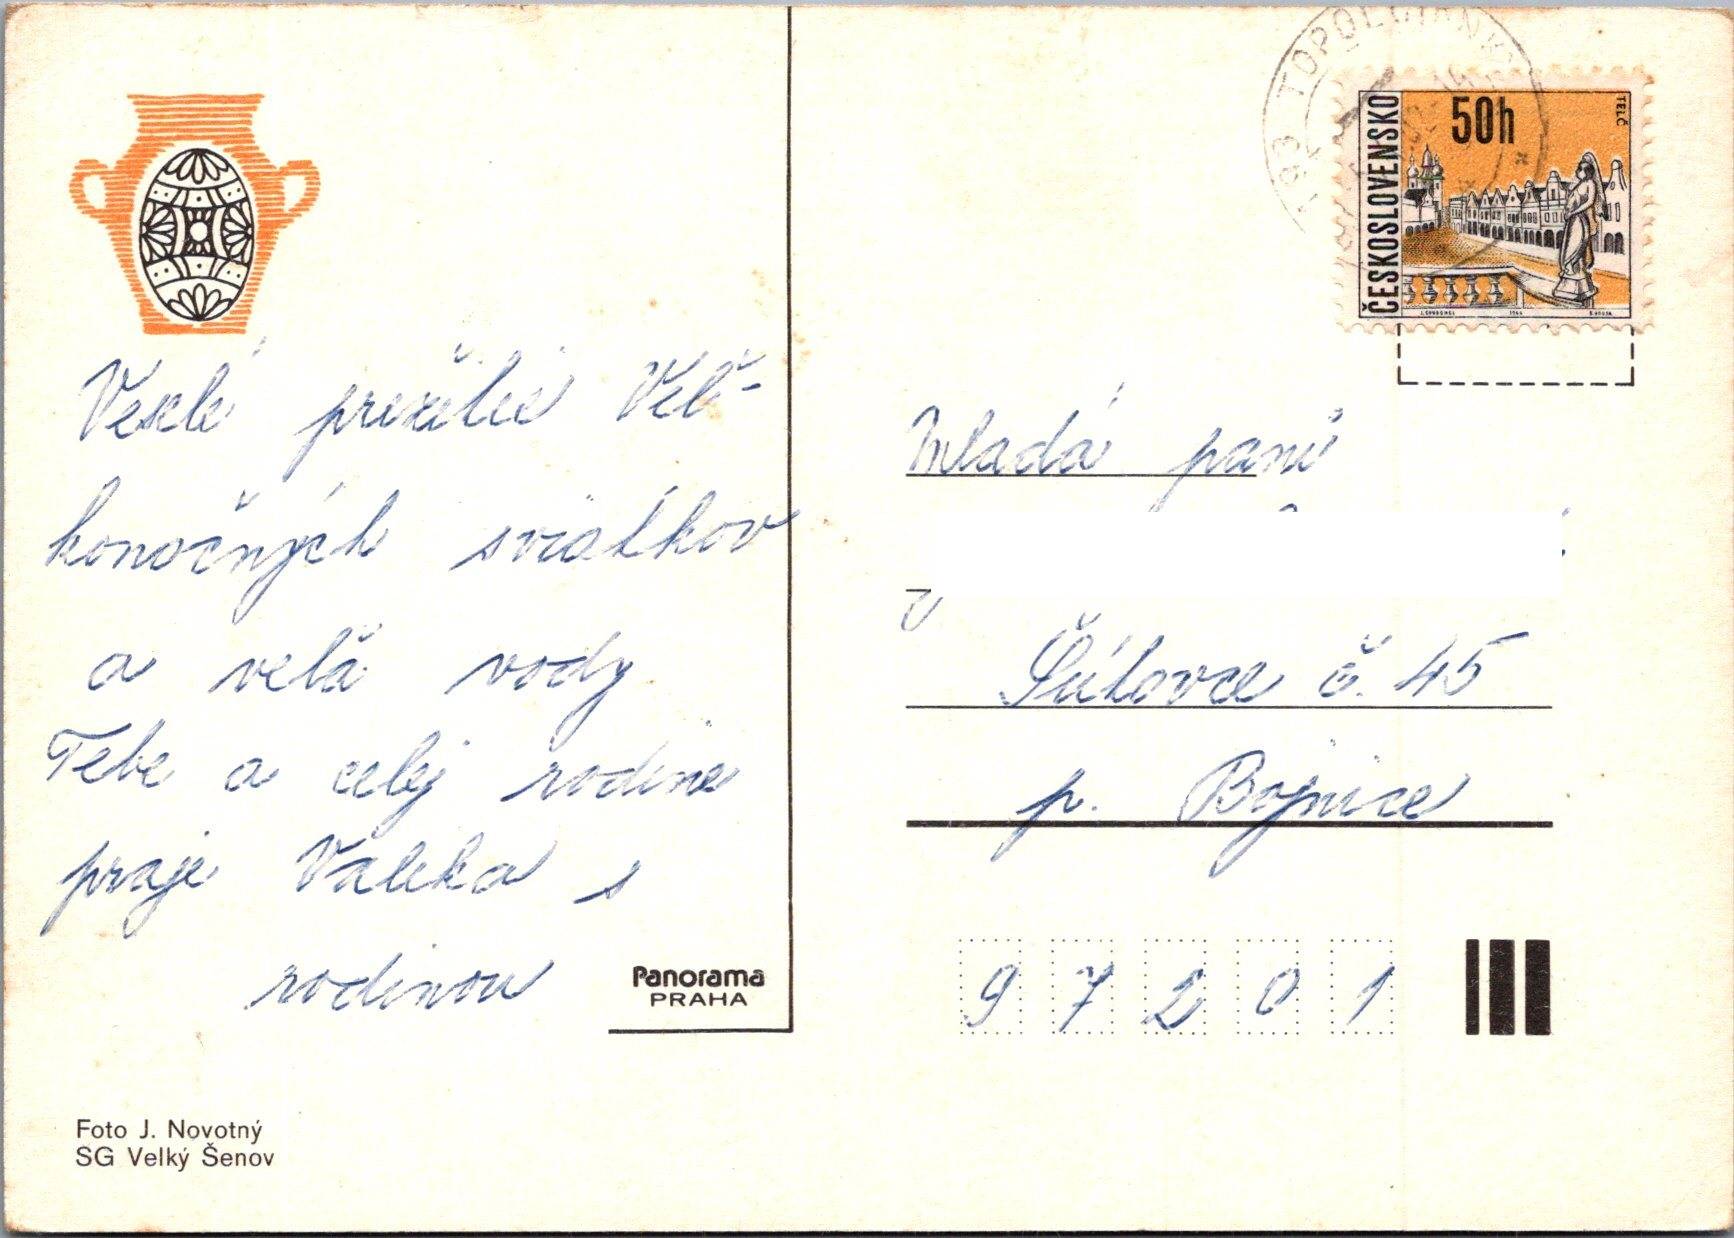 Veselé prežitie Veľ-
konočných sviatkov
a veľa vody
Tebe a celej rodine
praje Valika s
rodinou
Panorama
PRAHA
Foto J. Novotný
SG Velký Šenov
ČESKOSLOVENSKO
50h
TELČ
Mladá paní
Šútovce č. 45
p. Bojnice
9 7 2 0 1